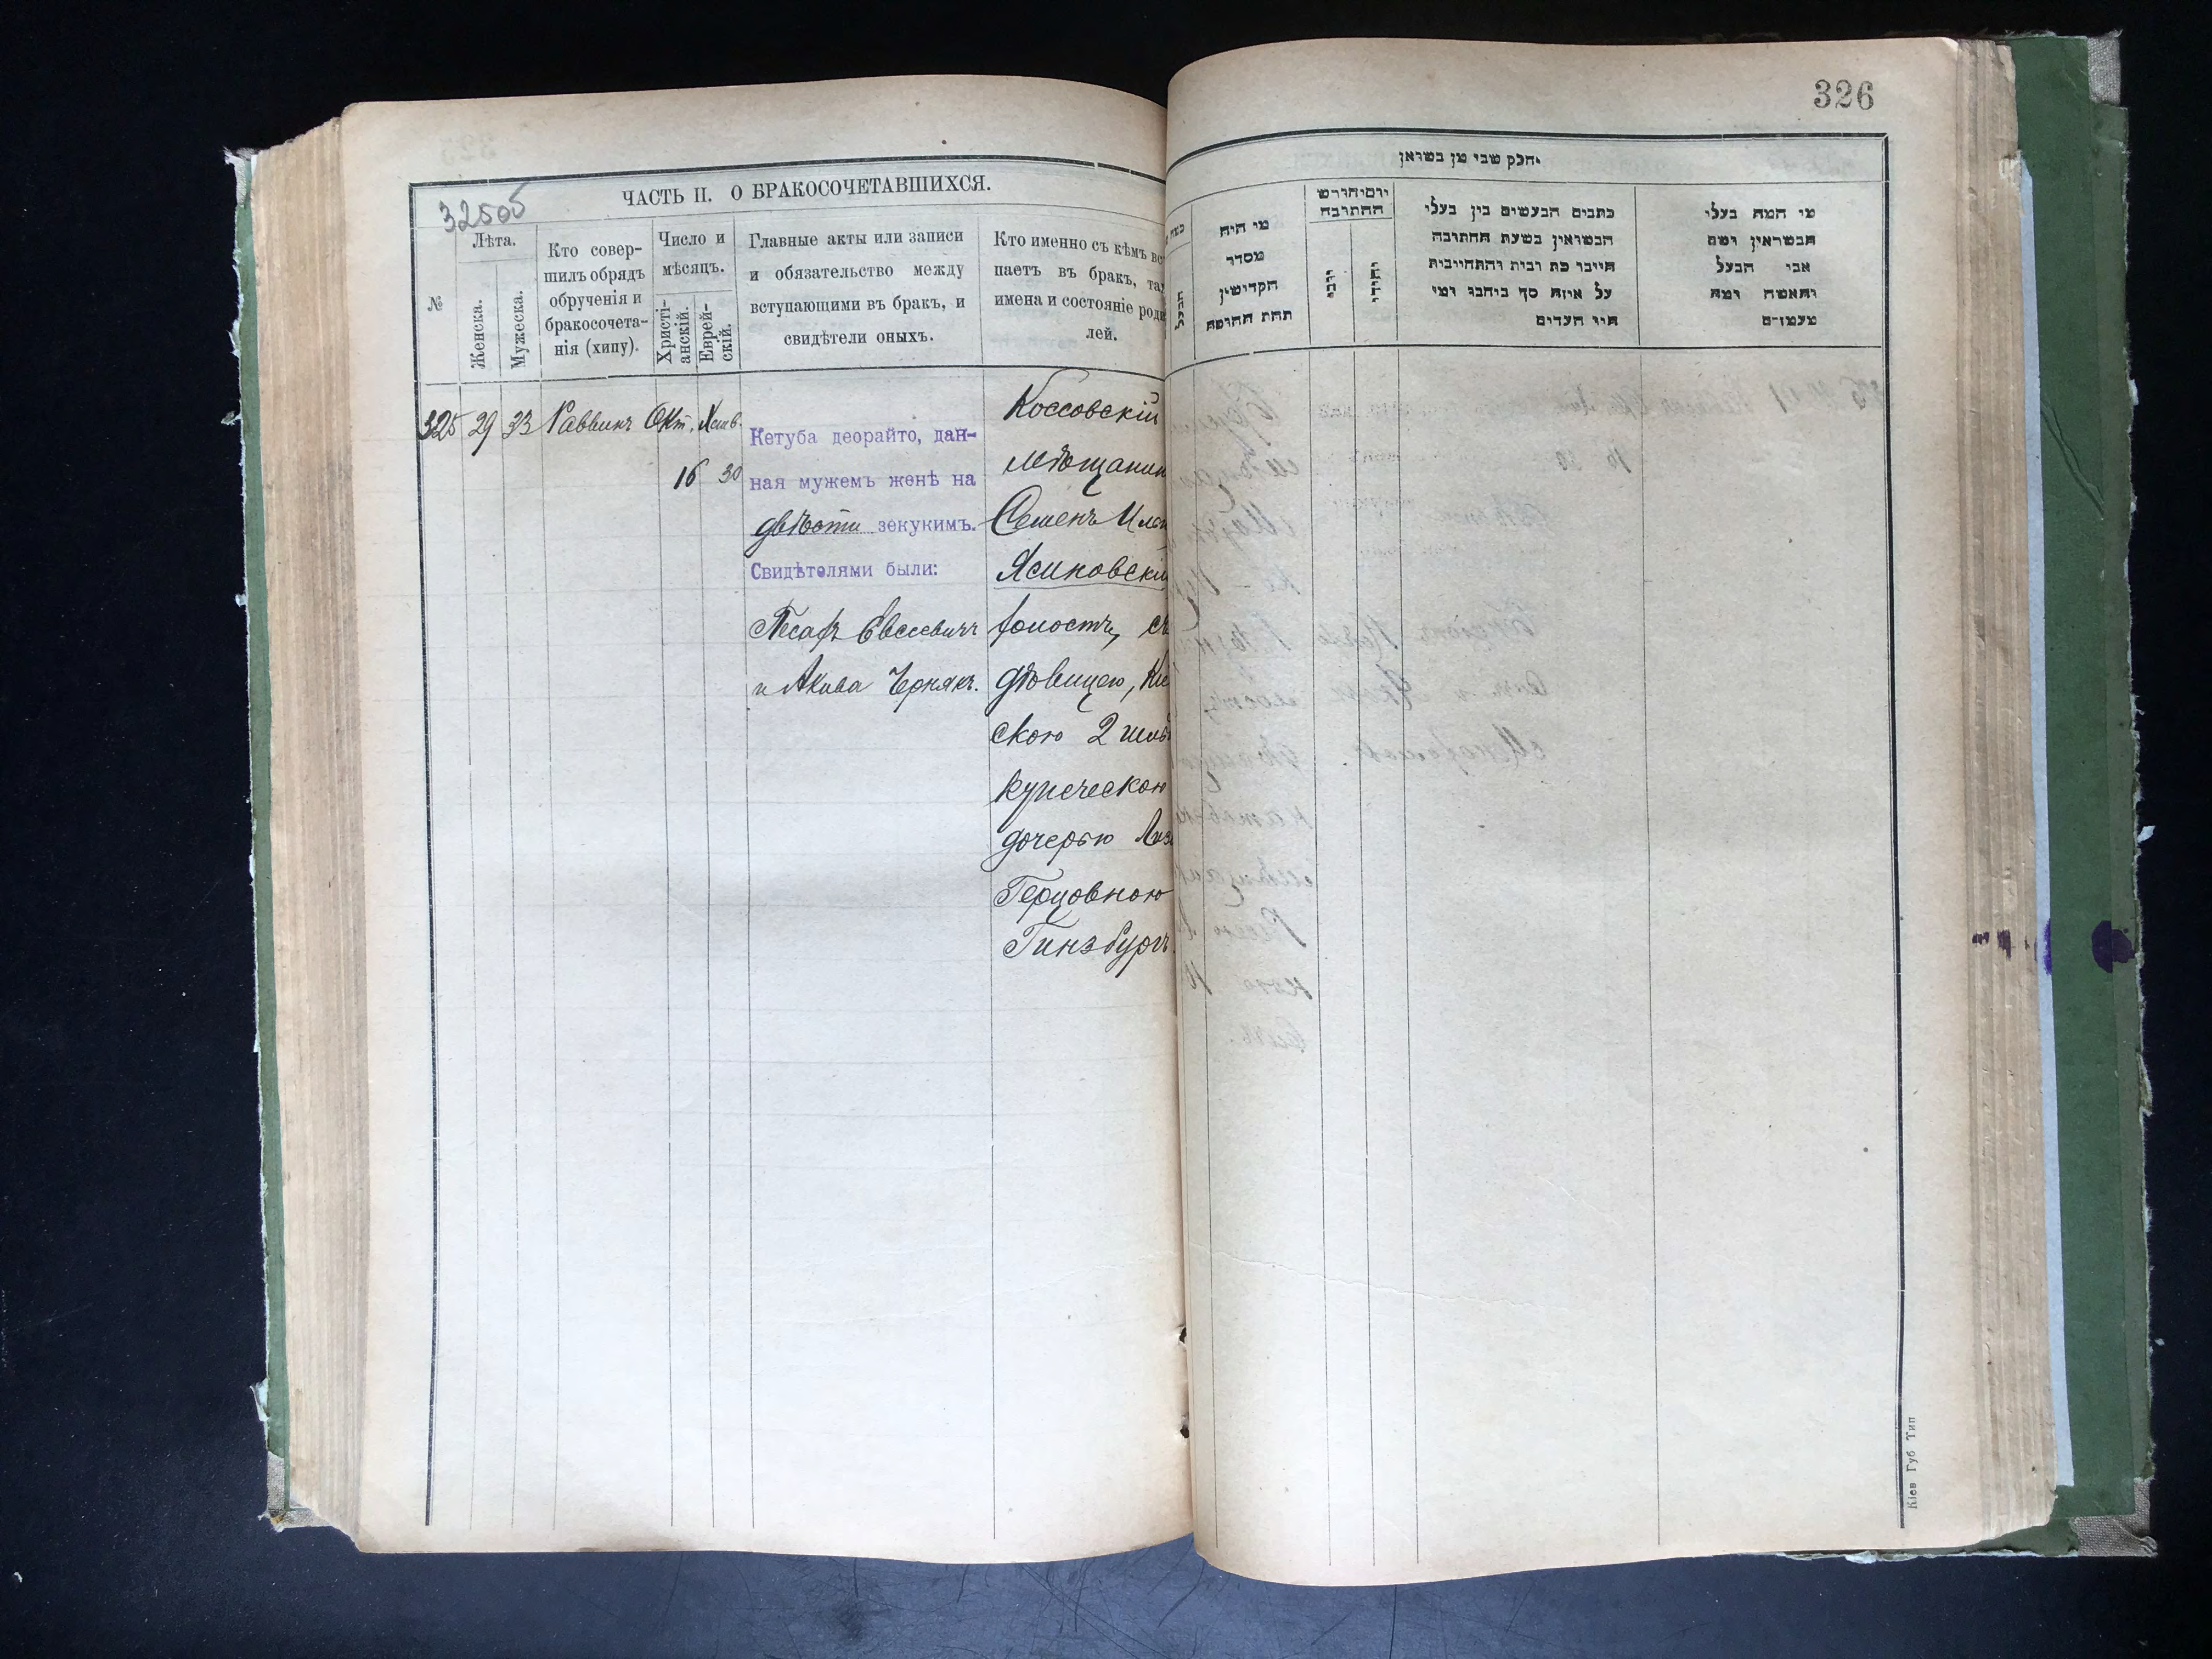 32505
ЧАСТЬ II. О БРАКОСОЧЕТАВШИХСЯ.
№
Лѣта.
Женска.
Мужеска.
Кто совер-
шилъ обрядъ
обрученія и
бракосочета-
нія (хипу).
Число и
мѣсяцъ.
Христі-
анскій.
Еврей-
скій.
Главные акты или записи
и обязательство между
вступающими въ брак, и
свидѣтели оныхъ.
Кто именно съ кѣмъ вс
паетъ въ бракъ, та
имена и состояніе роди
лей.
325 29 33 Раввинъ Окт. Хешв.
16 30
Кетуба деорайто, дан-
ная мужемъ женѣ на
двѣсти зекукимъ.
Свидѣтелями были:
Песахъ Евсевичъ
и Акива Чернякъ.
Коссовскій
мѣщанин
Семенъ
Ясиновскій
холостъ, съ
дѣвицею, Кіе
скою 2
купеческою
дочерью
Герцовною
Гинзбургъ
326
חלק שני מן נשואן
הבעל
מי היה
מסדר
הקדושין
תחת החופה
יום וחודש
החתונה
נוצרי
יהודי
כתבים הנעשים בין בעלי
הנשואין בשעת החתונה
חיובי כת רבית והתחייבות
על איזה סך ביחבג ומי
היו העדים
מי המה בעלי
הנשואין ושם
אבי הבעל
והאשה ומה
מעמדם
Кіев Губ Тип